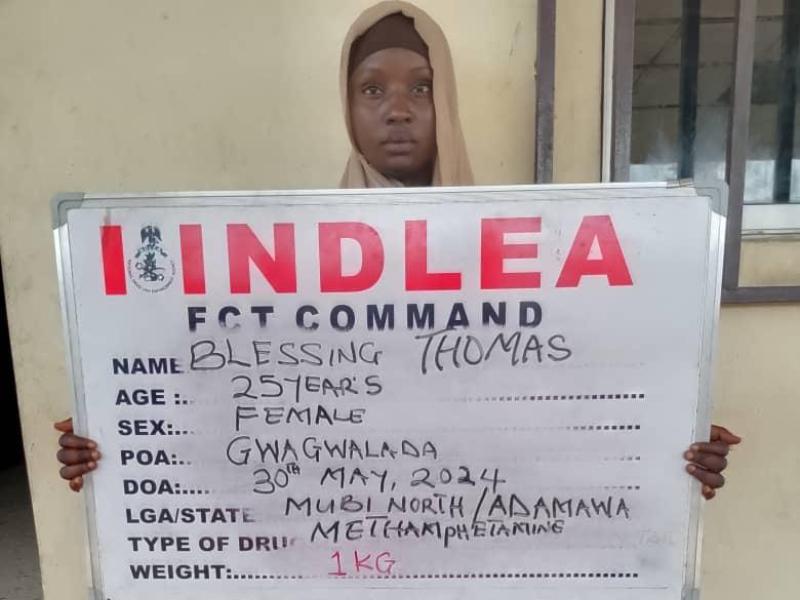 NDLEA
FCT COMMAND
NAME BLESSING THOMAS
AGE :.. 25 YEAR'S
SEX:... FEMALE
POA:.. GWAGWALADA
DOA:.... 30TH MAY, 2024
LGA/STATE MUBI NORTH/ADAMAWA
TYPE OF DRU METHAMPHETAMINE
WEIGHT:.... 1KG